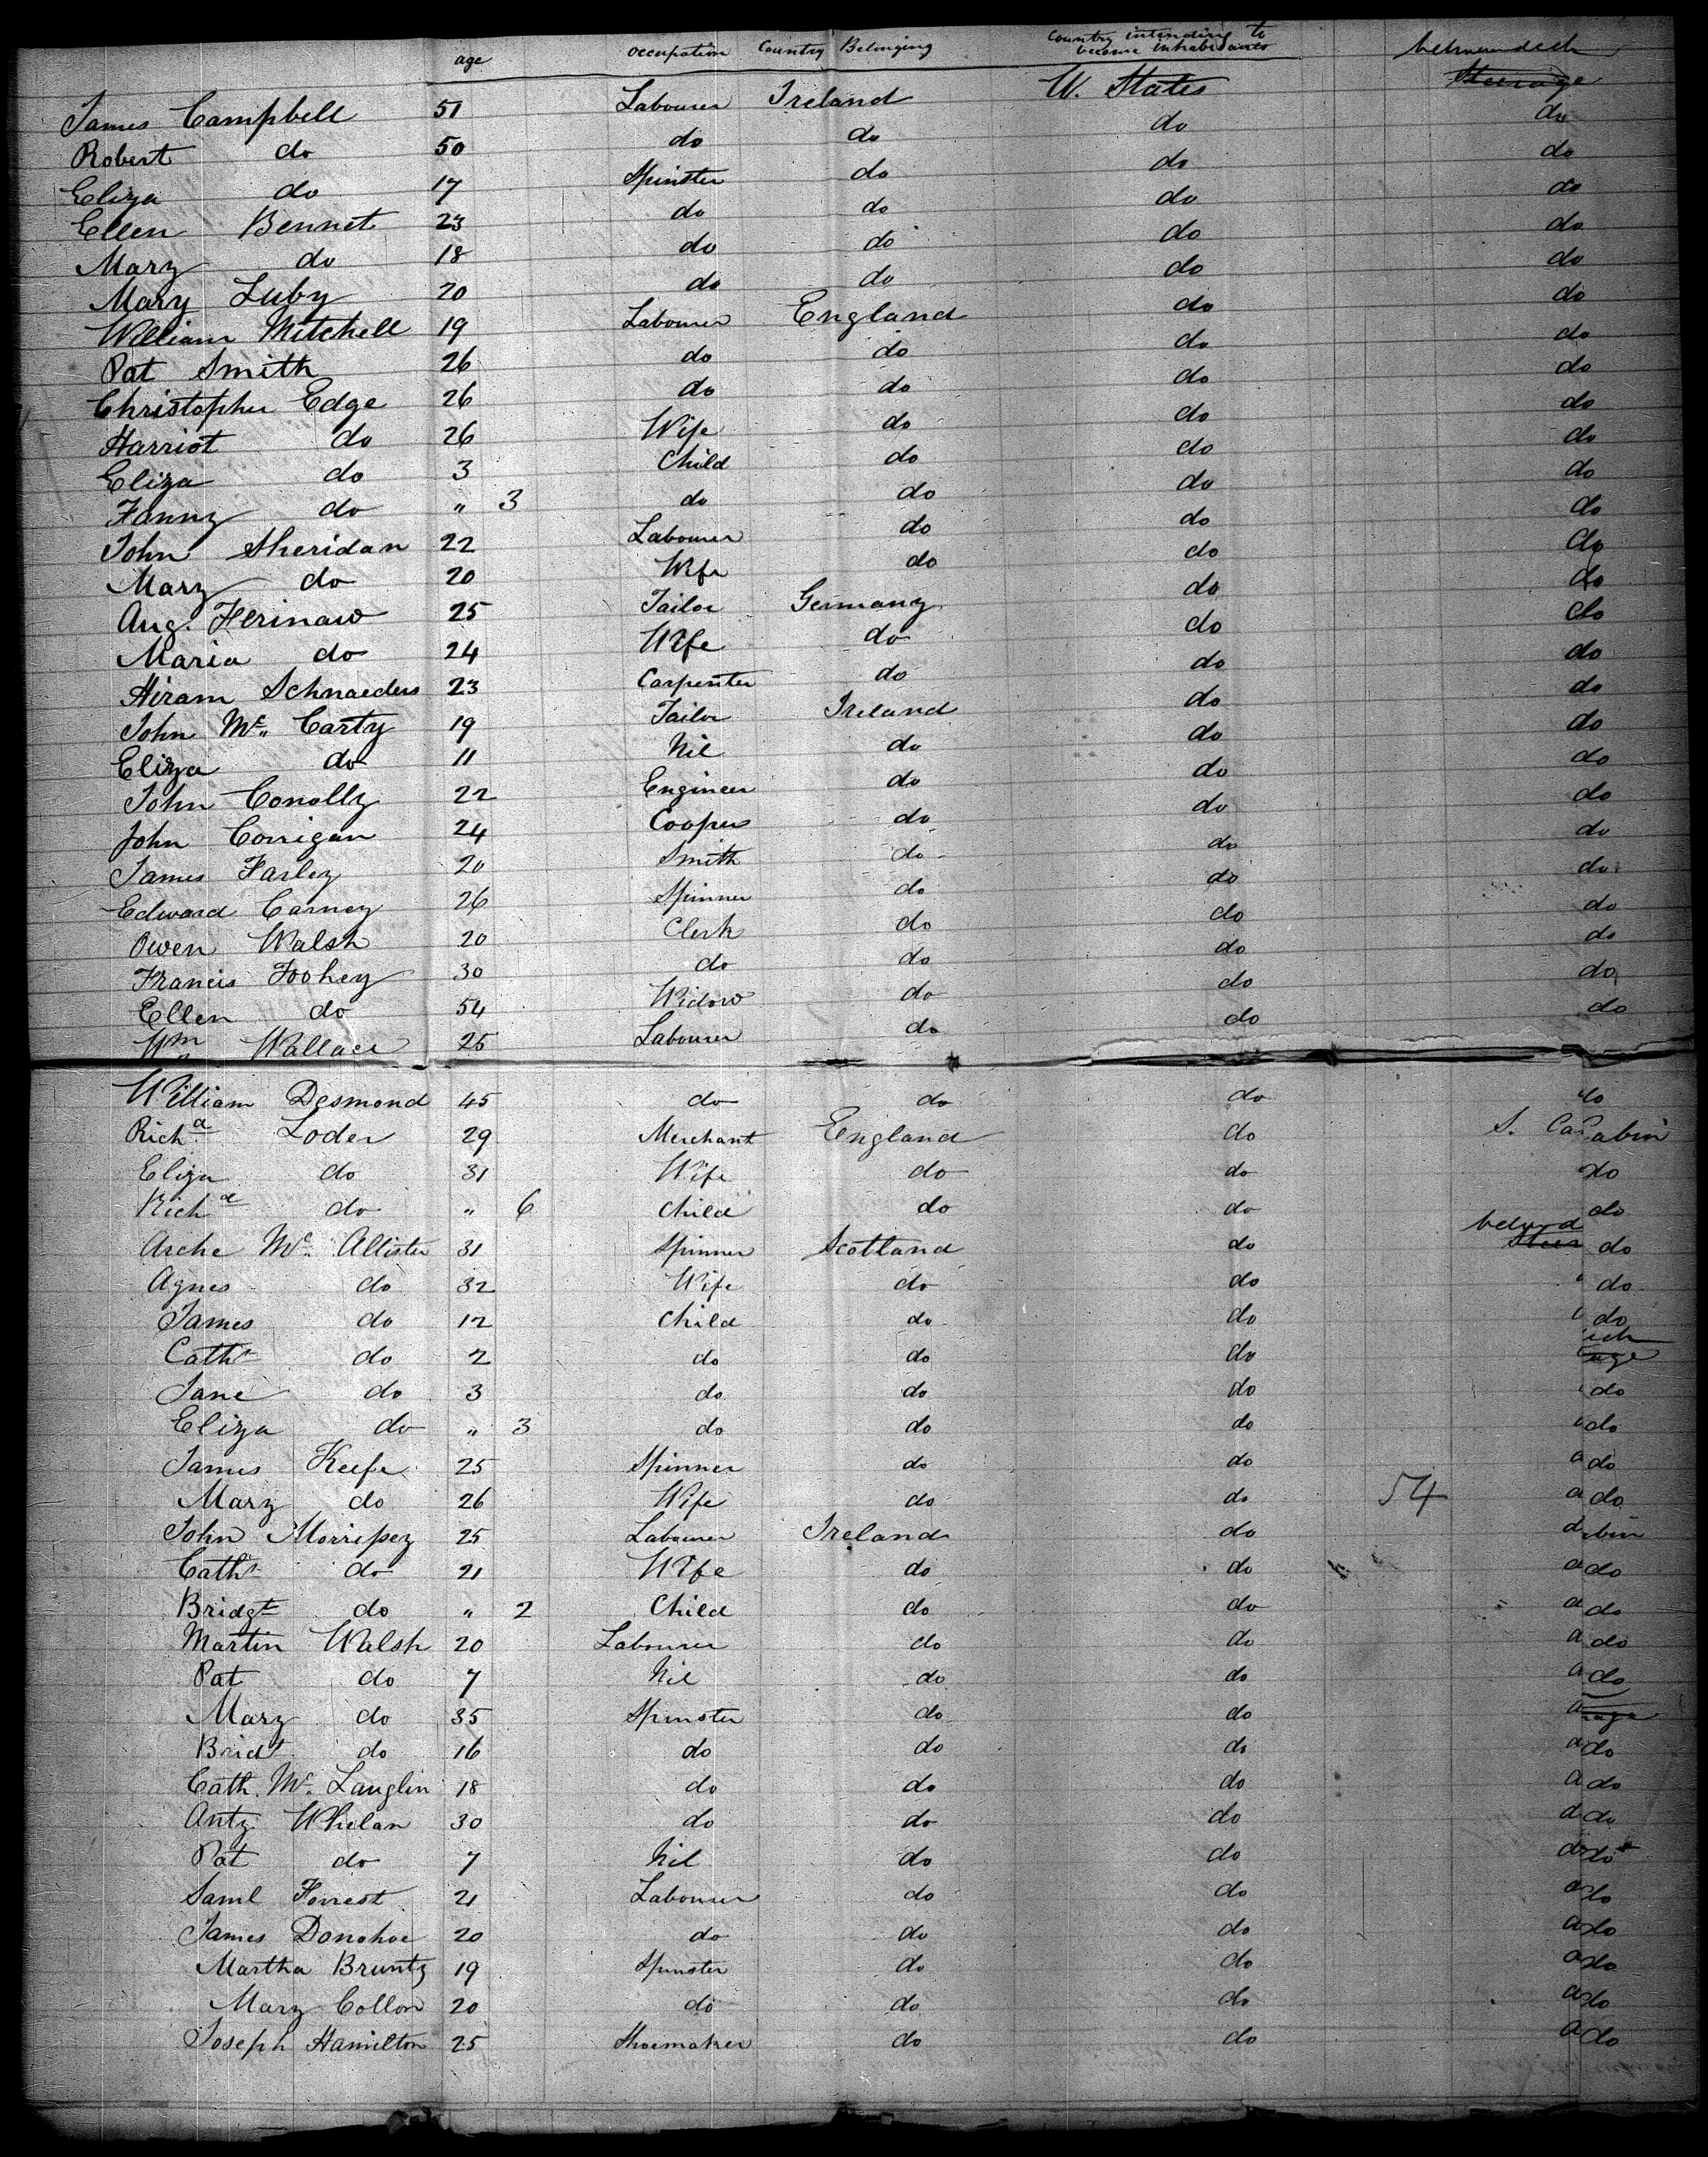 age occupation Country Belonging Country intending to become inhabitants between deck
James Campbell 51 Labourer Ireland U. States Steerage
Robert do 50 do do do do
Eliza do 17 Spinster do do do
Ellen Bennet 23 do do do do
Mary do 18 do do do do
Mary Luby 20 do do do do
William Mitchell 19 Labourer England do do
Pat Smith 26 do do do do
Christopher Edge 26 do do do do
Harriot do 26 Wife do do do
Eliza do 3 Child do do do
Fanny do " 3 do do do do
John Sheridan 22 Labourer do do do
Mary do 20 Wife do do do
Aug. Herinaw 25 Tailor Germany do do
Maria do 24 Wife do do do
Hiram Schnaeders 23 Carpenter do do do
John Mc Carty 19 Tailor Ireland do do
Eliza do 11 Nil do do do
John Conolly 22 Engineer do do do
John Corrigan 24 Cooper do do do
James Farley 20 Smith do do do
Edward Carney 26 Spinner do do do
Owen Walsh 20 Clerk do do do
Francis Foohey 30 do do do do
Ellen do 54 Widow do do do
Wm Wallace 25 Labourer do do
William Desmond 45 do do do do
Richd Loder 29 Merchant England do S. Cabin
Eliza do 31 Wife do do do
Richd do " 6 Child do do do
Arche Mc Allister 31 Spinner Scotland do do
Agnes do 32 Wife do do do
James do 12 Child do do do
Cath do 2 do do do
Jane do 3 do do do do
Eliza do " 3 do do do do
James Keefe 25 Spinner do do do
Mary do 26 Wife do do 54 do
John Morrisey 25 Labourer Ireland do
Cath do 21 Wife do do do
Bridgt do " 2 Child do do do
Martin Walsh 20 Labourer do do do
Pat do 7 Nil do do do
Mary do 35 Spinster do do
Bridt do 16 do do do do
Cath. Mc Lauglin 18 do do do do
Anty Whelan 30 do do do do
Pat do 7 Nil do do do
Saml Forrest 21 Labourer do do do
James Donohoe 20 do do do do
Martha Brunty 19 Spinster do do do
Mary Collon 20 do do do do
Joseph Hamilton 25 Shoemaker do do do